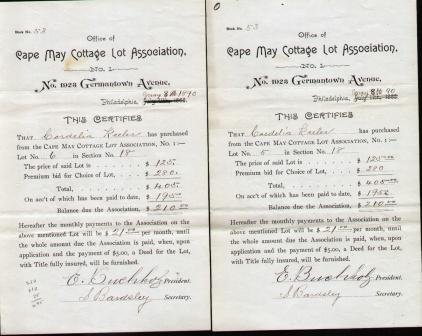 Book No. 53
Office of
Cape May Cottage Lot Association,
No. 1
No. 1928 Germantown Avenue,
Philadelphia, 8th 1890
THIS CERTIFIES
THAT Cordelia Keeler has purchased
from the CAPE MAY COTTAGE LOT ASSOCIATION, No. 1:—
Lot No. 6 in Section No. 18
The price of said Lot is $ 125.
Premium bid for Choice of Lot, $ 280.
Total, $ 405.
On acc't of which has been paid to date, $ 195
Balance due the Association, $ 210.00
Hereafter the monthly payments to the Association on the
above mentioned Lot will be $ 21.00 per month, until
the whole amount due the Association is paid, when, upon
application and the payment of $5.00, a Deed for the Lot,
with Title fully insured, will be furnished.
E. Buchholz President.
S Bardsley Secretary.
Book No. 53
Office of
Cape May Cottage Lot Association,
No. 1
No. 1928 Germantown Avenue,
Philadelphia, 8th 90
THIS CERTIFIES
THAT Cordelia Keeler has purchased
from the CAPE MAY COTTAGE LOT ASSOCIATION, No. 1:—
Lot No. 5 in Section No. 18
The price of said Lot is $ 125.00
Premium bid for Choice of Lot, $ 280
Total, $ 405.00
On acc't of which has been paid to date, $ 195
Balance due the Association, $ 210.00
Hereafter the monthly payments to the Association on the
above mentioned Lot will be $ 21.00 per month, until
the whole amount due the Association is paid, when, upon
application and the payment of $5.00, a Deed for the Lot,
with Title fully insured, will be furnished.
E. Buchholz President.
S Bardsley Secretary.